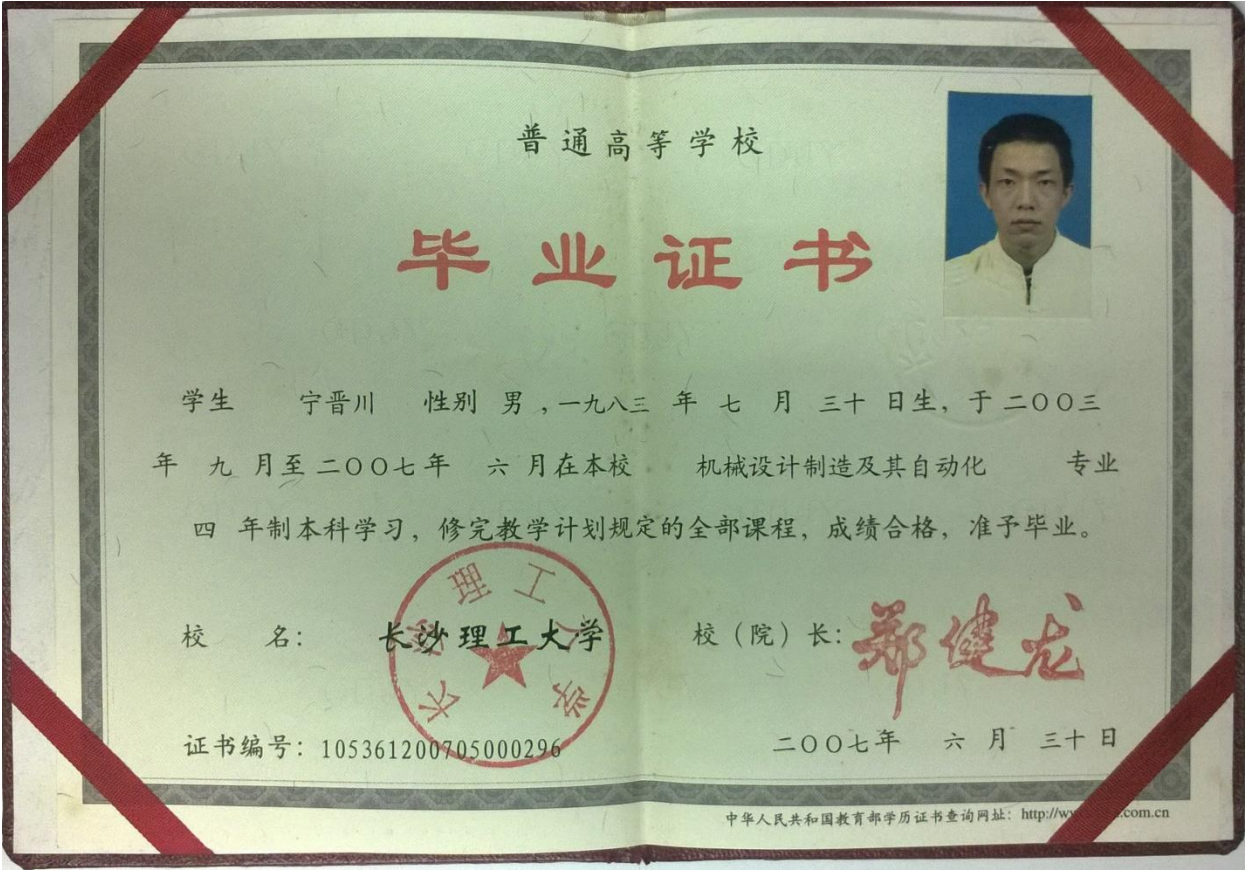 普通高等学校
毕业证书
学生 宁晋川 性别 男 ,一九八三 年 七 月 三十 日生, 于 二〇〇三
年 九 月至 二〇〇七 年 六 月在本校 机械设计制造及其自动化 专业
四 年制本科学习, 修完教学计划规定的全部课程, 成绩合格, 准予毕业。
校 名: 长沙理工大学 校(院)长: 郑健龙
长沙理工大学
证书编号: 105361200705000296 二〇〇七年 六 月 三十 日
中华人民共和国教育部学历证书查询网址: http://w .com.cn